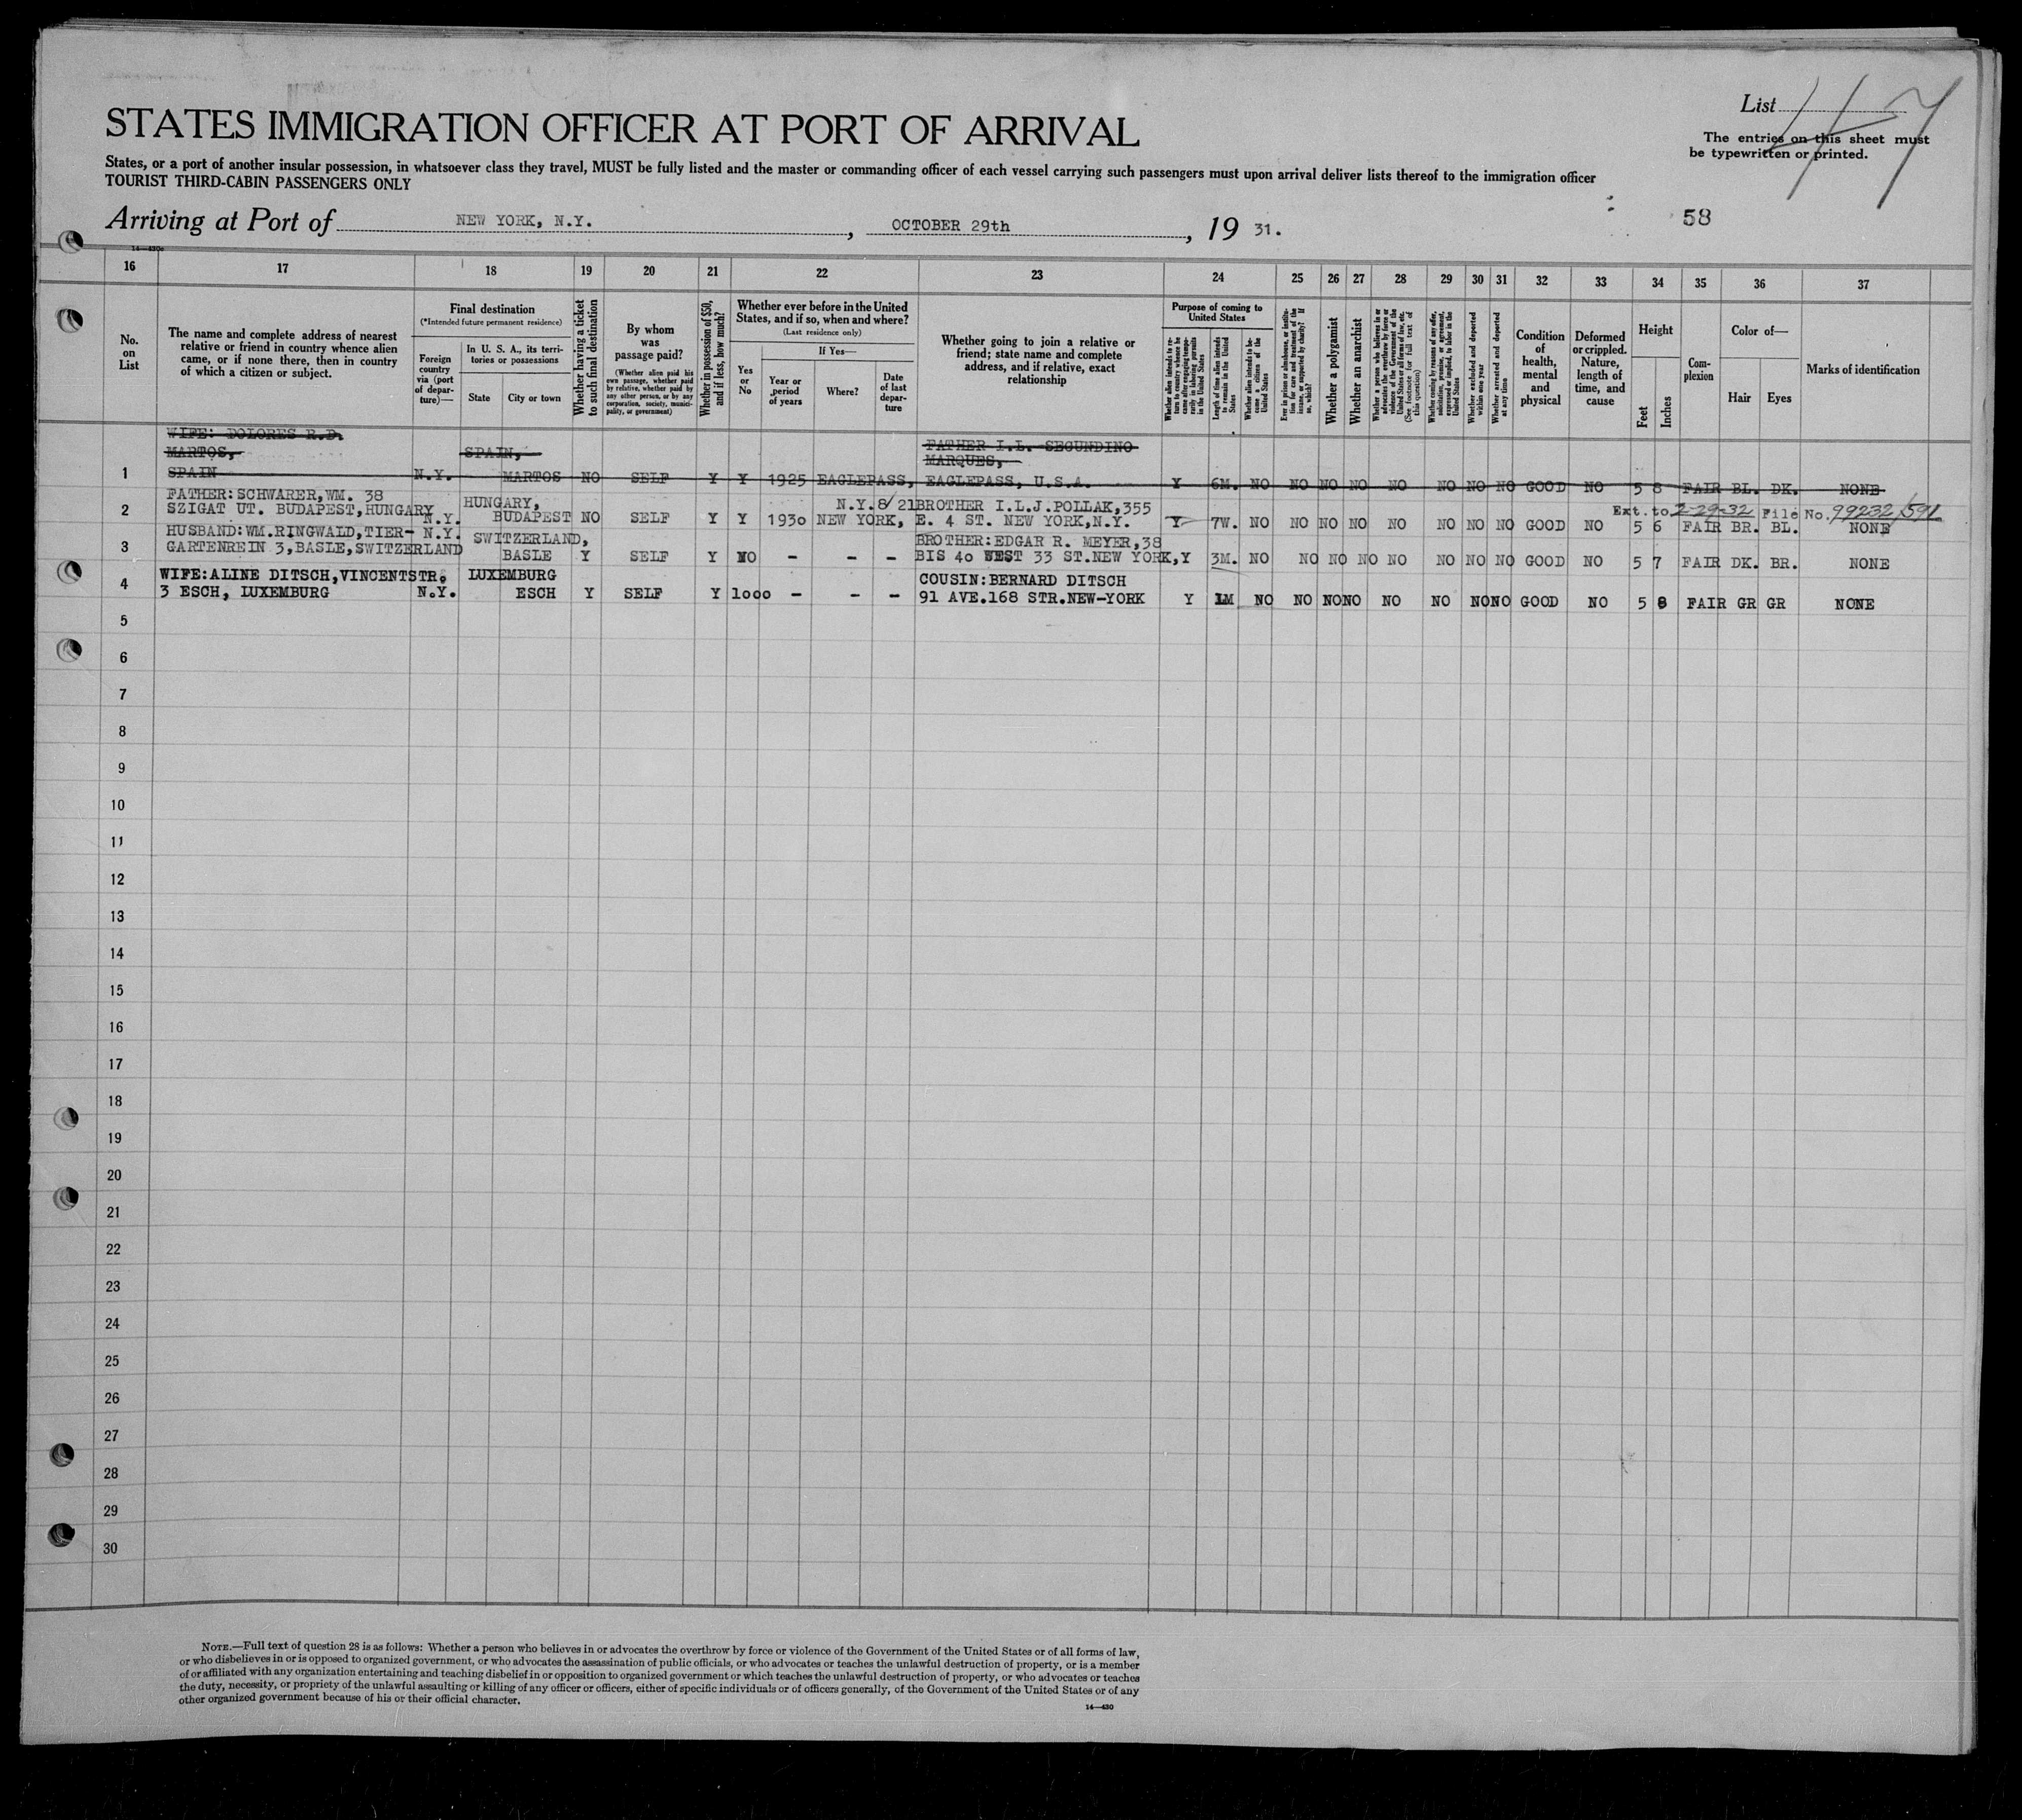 List 147
STATES IMMIGRATION OFFICER AT PORT OF ARRIVAL
The entries on this sheet must
be typewritten or printed.
States, or a port of another insular possession, in whatsoever class they travel, MUST be fully listed and the master or commanding officer of each vessel carrying such passengers must upon arrival deliver lists thereof to the immigration officer
TOURIST THIRD-CABIN PASSENGERS ONLY
Arriving at Port of NEW YORK, N.Y., OCTOBER 29th, 19 31.
58
14—430c
16 17 18 19 20 21 22 23 24 25 26 27 28 29 30 31 32 33 34 35 36 37
No. on List
The name and complete address of nearest
relative or friend in country whence alien
came, or if none there, then in country
of which a citizen or subject.
Final destination
(*Intended future permanent residence)
Foreign country via (port of departure)—
In U. S. A., its territories or possessions
State
City or town
Whether having a ticket to such final destination
By whom was passage paid?
(Whether alien paid his own passage, whether paid by relative, whether paid by any other person, or by any corporation, society, municipality, or government)
Whether in possession of $50, and if less, how much?
Whether ever before in the United States, and if so, when and where?
(Last residence only)
Yes or No
If Yes—
Year or period of years
Where?
Date of last departure
Whether going to join a relative or
friend; state name and complete
address, and if relative, exact
relationship
Purpose of coming to United States
Whether alien intends to return to country whence he came after engaging temporarily in laboring pursuits in the United States
Length of time alien intends to remain in the United States
Whether alien intends to become a citizen of the United States
Ever in prison or almshouse, or institution for care and treatment of the insane, or supported by charity? If so, which?
Whether a polygamist
Whether an anarchist
Whether a person who believes in or advocates the overthrow by force or violence of the Government of the United States or all forms of law, etc. (See footnote for full text of this question)
Whether coming by reasons of any offer, solicitation, promise, or agreement, expressed or implied, to labor in the United States
Whether excluded and deported within one year
Whether arrested and deported at any time
Condition of health, mental and physical
Deformed or crippled. Nature, length of time, and cause
Height
Feet
Inches
Complexion
Color of—
Hair
Eyes
Marks of identification
WIFE: DOLORES R.D.
MARTOS, SPAIN, FATHER I.L. SEGUNDINO
MARQUES,
1 SPAIN N.Y. MARTOS NO SELF Y Y 1925 EAGLEPASS, EAGLEPASS, U.S.A. Y 6M. NO NO NO NO NO NO NO NO GOOD NO 5 8 FAIR BL. DK. NONE
FATHER: SCHWARER, WM. 38 HUNGARY, N.Y. 8/21 BROTHER I.L.J.POLLAK, 355 Ext. to 2-29-32 File No. 99232/591
2 SZIGAT UT. BUDAPEST, HUNGARY N.Y. BUDAPEST NO SELF Y Y 1930 NEW YORK, E. 4 ST. NEW YORK, N.Y. Y 7W. NO NO NO NO NO NO NO NO GOOD NO 5 6 FAIR BR. BL. NONE
HUSBAND: WM. RINGWALD, TIER- N.Y. SWITZERLAND, BROTHER: EDGAR R. MEYER, 38
3 GARTENREIN 3, BASLE, SWITZERLAND BASLE Y SELF Y NO - - - BIS 40 WEST 33 ST. NEW YORK, Y 3M. NO NO NO NO NO NO NO NO GOOD NO 5 7 FAIR DK. BR. NONE
WIFE: ALINE DITSCH, VINCENTSTR. LUXEMBURG COUSIN: BERNARD DITSCH
4 3 ESCH, LUXEMBURG N.Y. ESCH Y SELF Y 1000 - - - 91 AVE. 168 STR. NEW-YORK Y 1M NO NO NO NO NO NO NO NO GOOD NO 5 8 FAIR GR GR NONE
5
6
7
8
9
10
11
12
13
14
15
16
17
18
19
20
21
22
23
24
25
26
27
28
29
30
NOTE.—Full text of question 28 is as follows: Whether a person who believes in or advocates the overthrow by force or violence of the Government of the United States or of all forms of law,
or who disbelieves in or is opposed to organized government, or who advocates the assassination of public officials, or who advocates or teaches the unlawful destruction of property, or is a member
of or affiliated with any organization entertaining and teaching disbelief in or opposition to organized government or which teaches the unlawful destruction of property, or who advocates or teaches
the duty, necessity, or propriety of the unlawful assaulting or killing of any officer or officers, either of specific individuals or of officers generally, of the Government of the United States or of any
other organized government because of his or their official character.
14—430